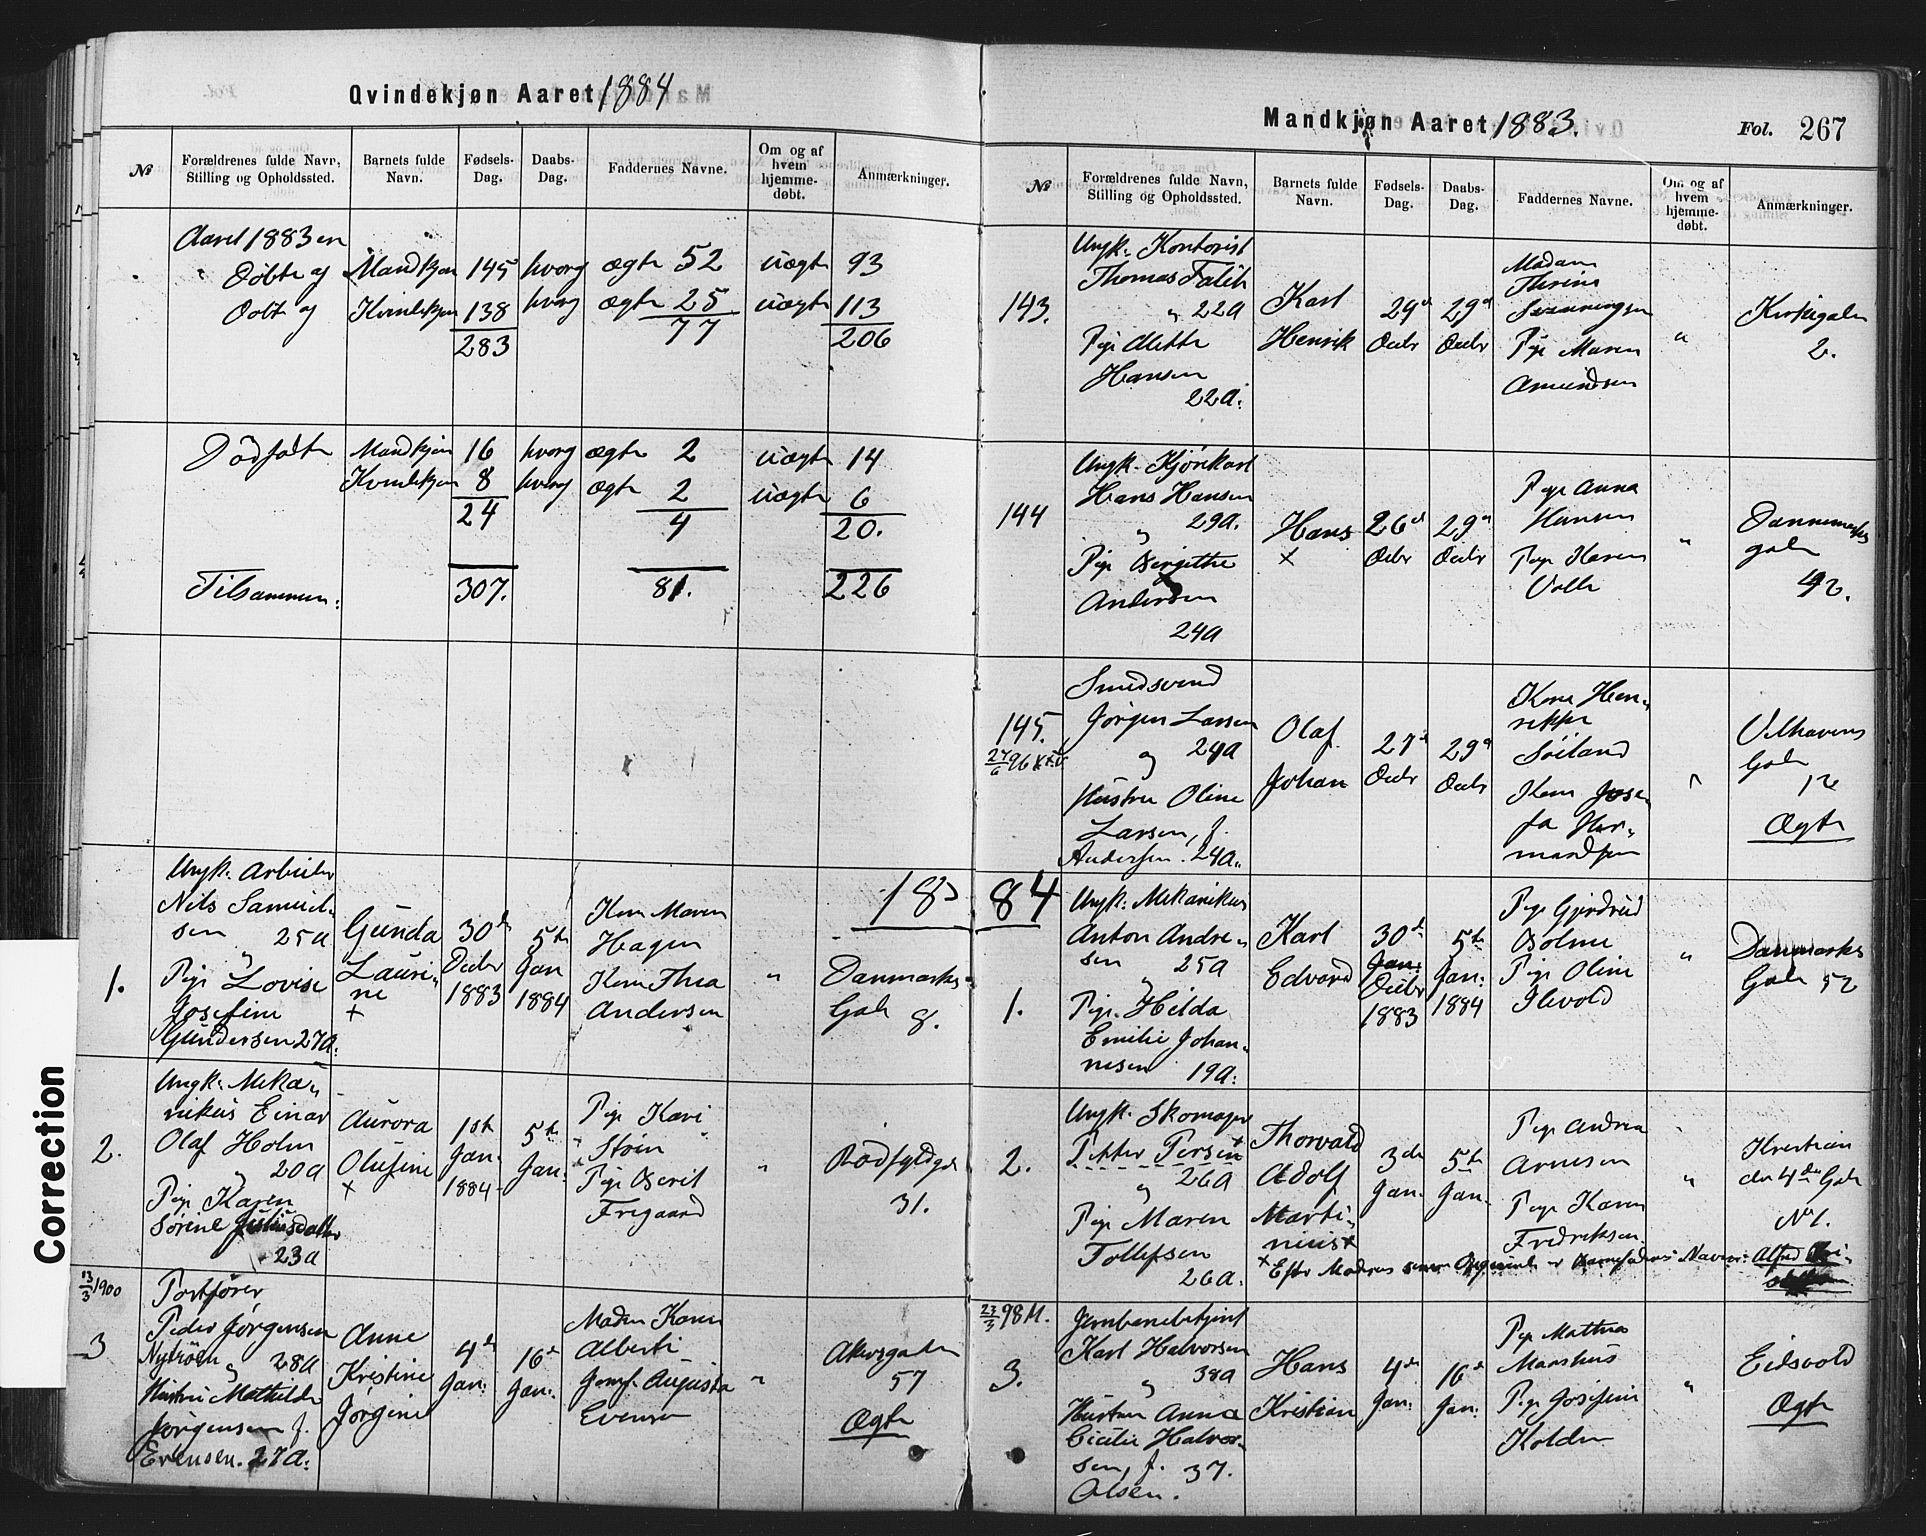 Qvindekjøn Aaret 1884
№
Forældrenes fulde Navn, Stilling og Opholdssted.
Barnets fulde Navn.
Fødsels-Dag.
Daabs-Dag.
Faddernes Navne.
Om og af hvem hjemme-døbt.
Anmærkninger.
Aaret 1883 er
Døbte af Mandkjøn 145 hvorg ægte 52 uægte 93
Døbt af Kvindekjøn 138 hvorg ægte 25 uægte 113
283 77 206
Dødfødte Mandkjøn 16 hvorg ægte 2 uægte 14
Kvindekjøn 8 hvorg ægte 2 uægte 6
24 4 20.
Tilsammen: 307. 81. 226
1884
1.
Ungk. Arbeider
Nils Samuel-
sen 25 A
"
Pige Lovise
Josefine
Gundersen 27 A.
Gunda
Lauri-
ne
+
30d
Decbr
1883
5te
Jan
1884
Kone Maren
Hagen
Kone Thea
Andersen
"
Danmarks
Gade 8.
2.
Ungk. Meka-
nikus Einar
Olaf Holm
" 20 A
Pige Karen
Sørine
23 A
Aurora
Olufine
+
1st
Jan.
1884
5te
Jan.
Pige Kari
Støin
Pige Berit
Fregaard
"
Rødfyldgd
31.
13/3 1900
3
Portfører
Peder Jørgensen
Nytrøen 28 A
Hustru Mathilde
Jørgensen f.
Evensen. 27 A.
Anne
Kristine
Jørgine
4d
Jan.
16d
Jan.
Madm Karen
Alberti
Jomf. Augusta
Evensen
"
Akersgaden
57
Ægte
Mandkjøn Aaret 1883.
Fol. 267
№
Forældrenes fulde Navn, Stilling og Opholdssted.
Barnets fulde Navn.
Fødsels-Dag.
Daabs-Dag.
Faddernes Navne.
Om og af hvem hjemme-døbt.
Anmærkninger.
143.
Ungk. Kontorist
Thomas Falth
" 22 A
Pige Mette
Hansen
22 A.
Karl
Henrik
29d
Decbr
29d
Decbr
Madam
Thrine
Svenningsen
Pige Maren
Amundsen
"
Kirkegaden
2.
144
Ungk. Kjørekarl
Hans Hansen
" 29 A.
Pige Bergitte
Andersen
24 A
Hans
+
26d
Decbr
29d
Decbr
Pige Anna
Hansen
Pige Karen
Volle
"
Dannemarks
gade
42.
145.
27/6 96
Smedsvend
Jørgen Larsen
og 24 A
Hustru Oline
Larsen, f.
Andersen. 24 A.
Olaf
Johan
27d
Decbr
29d
Decbr
Kone Hen-
rikke
Søiland
Kone Jose-
fa Her-
mandsen
"
Velhavens
Gade
12
Ægte
1.
Ungk. Mekanikus
Anton Andre-
sen
" 25 A
Pige Hilda
Emilie Johan-
nesen 19 A.
Karl
Edvard
30d
Jan.
Decbr
1883
5te
Jan.
1884
Pige Gjerdrud
Bolme
Pige Oline
Ilevold
"
Danmarks
Gade 52
2.
Ungk. Skomager
Petter Persen
" 26 A
Pige Maren
Tollefsen
26 A.
Thorvald
Adolf
Marti-
nius +
3die
Jan.
5te
Jan.
Pige Andrea
Arnesen
Pige Karen
Fredriksen
"
Kristian
den 4de Gade
No 1.
+ Efter Moderens senere Opgivende er Barnefaderens Navn: Alfred
23/3 98 M.
3.
Jernbanebetjent
Karl Halvorsen
" 38 A
Hustru Anna
Cicilie Halvor-
sen, f. 37.
Olsen.
Hans
Kristian
4de
Jan.
16d
Jan.
Pige Mathea
Maashus
Pige Josefine
Kolden
"
Eidsvold
Ægte
Correction